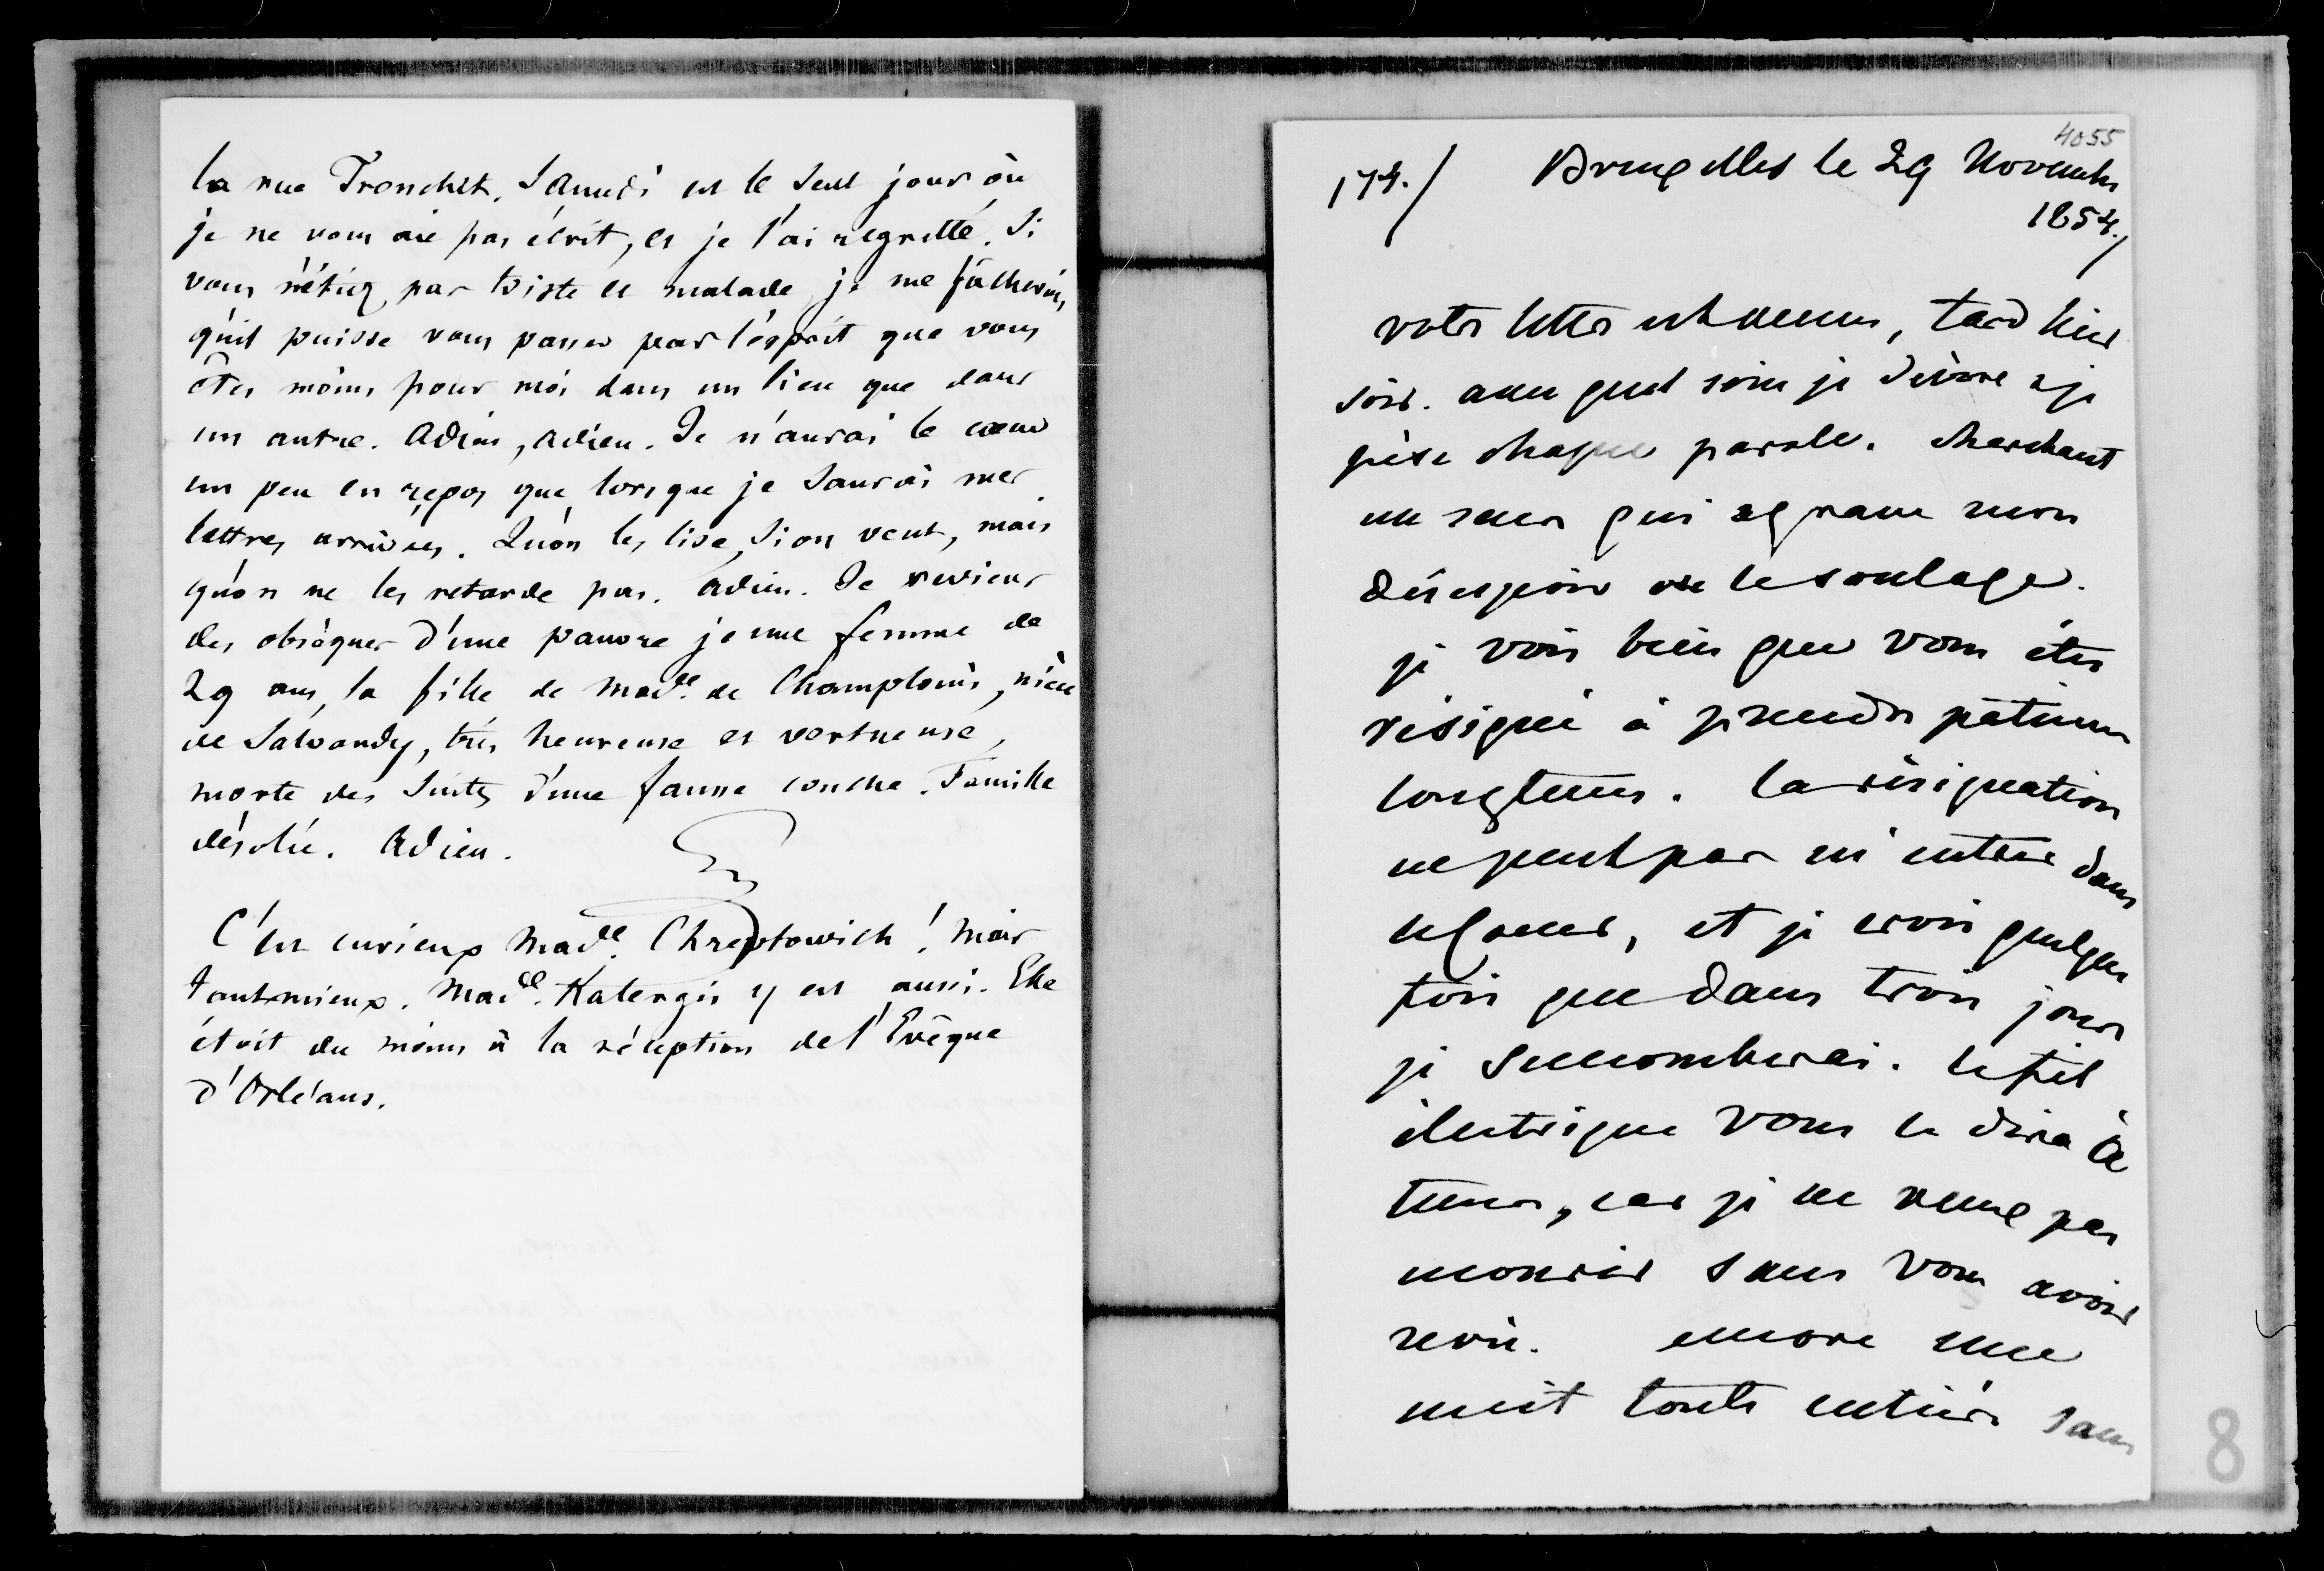 la rue Tronchet. Samedi est le seul jour où
je ne vous aie pas écrit, et je l'ai regretté. Si
vous n'étiez pas triste et malade, je me fâcherois
qu'il puisse vous passer par l'esprit que vous
êtes moins pour moi dans un lieu que dans
un autre. Adieu, adieu. Je n'aurai le cœur
un peu en repos que lorsque je saurai mes
lettres arrivées. Qu'on les lise, si on veut, mais
qu'on ne les retarde pas. Adieu. Je reviens
des obsèques d'une pauvre jeune femme de
29 ans, la fille de Made de Champlouis, nièce
de Salvandy, très heureuse et vertueuse,
morte des suites d'une fausse couche. Famille
désolée. Adieu.
C'est curieux Made Chreptowich ! Mais
tant mieux. Made Kalergis y est aussi. Elle
étoit du moins à la réception de l'Evêque
d'Orléans.
4055
174./ Bruxelles le 29 Novembre
1854./
votre lettre est venue, tard hier
soir. avec quel soin je dévore & je
pèse chaque parole. cherchant
un sens qui aggrave mon
désespoir ou le soulage.
je vois bien que vous êtes
résigné à prendre patience
longtems. la résignation
ne peut pas m'entrer dans
le coeur, et je crois quelque
fois que dans trois jours
je succomberai. le fil
électrique vous le dira à
tems, car je ne veux pas
mourir sans vous avoir
revu. encore une
nuit toute entière sans
8